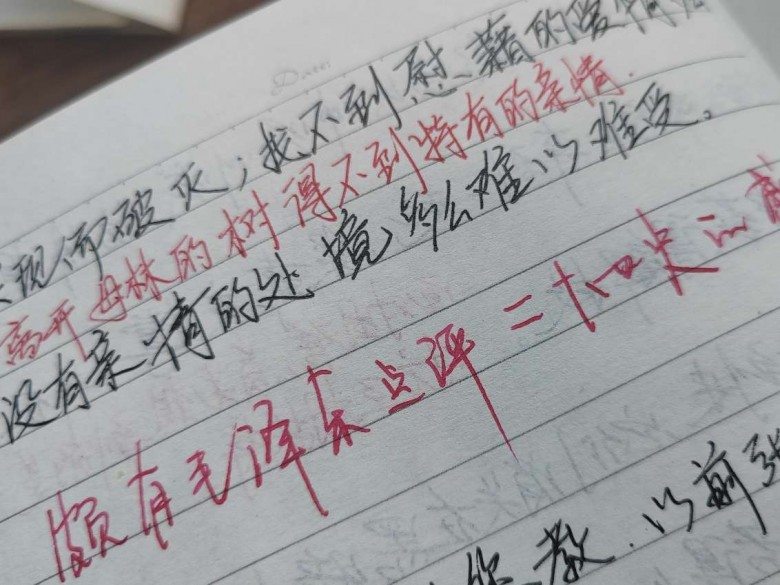 现而破灭；找不到慰藉的爱情
离开母林的树得不到特有的亲情.
没有亲情的处境，多么难以难受。
颇有毛泽东点评二十四史之
教.以前